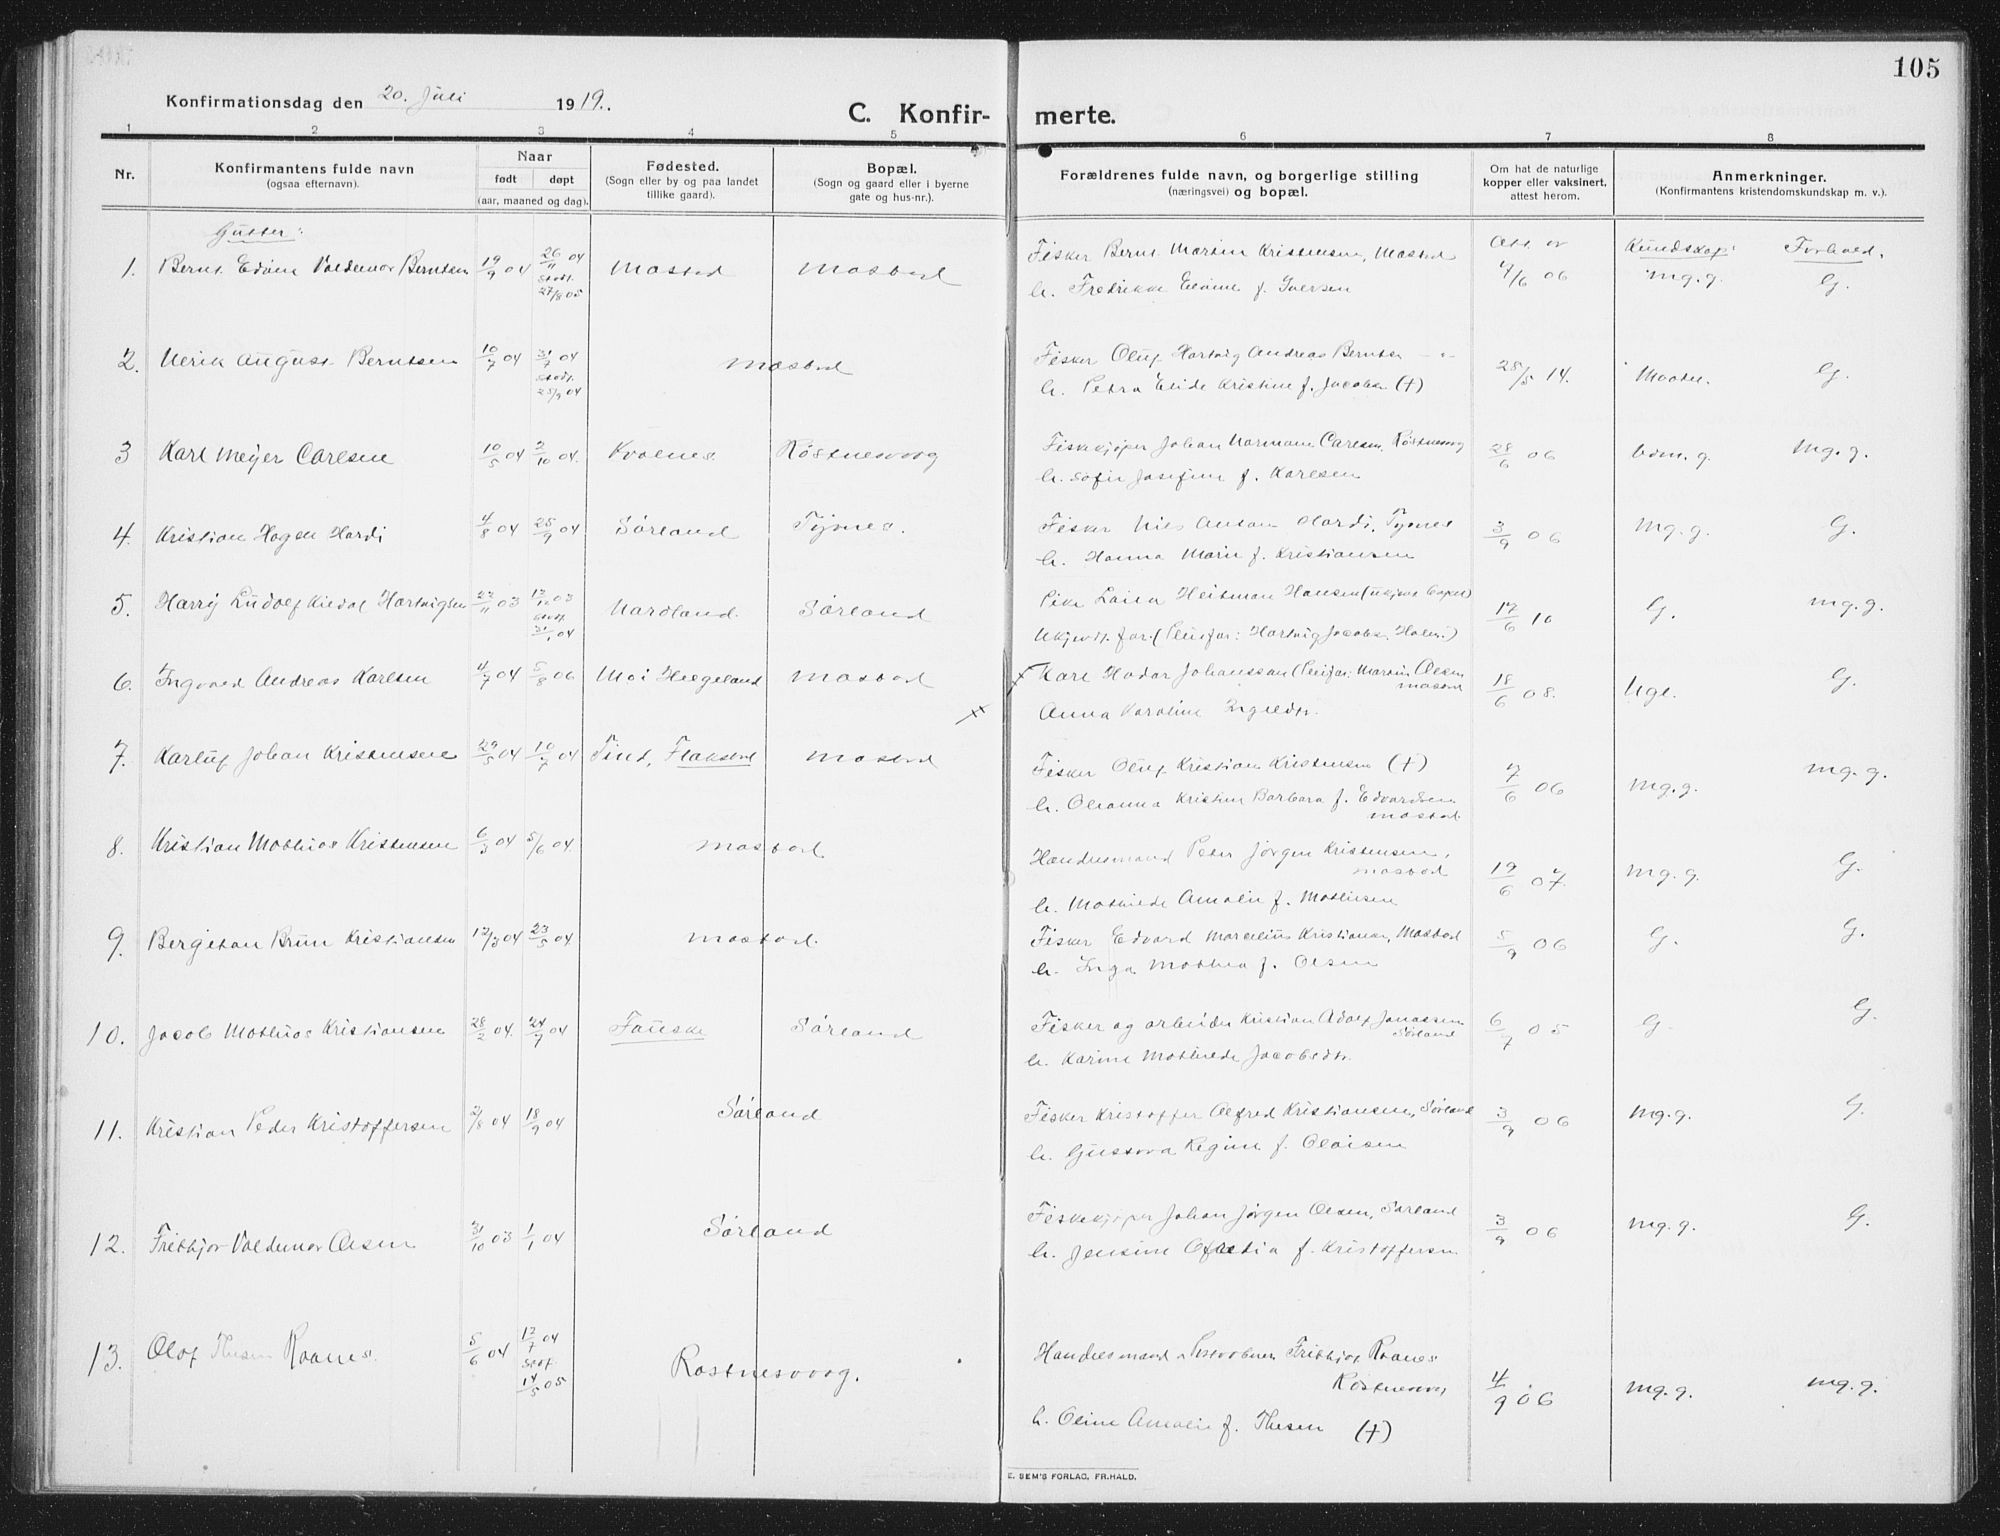 105
Konfirmationsdag den 20. Juli 1919.
C. Konfirmerte.
1 2 3 4 5 6 7 8
Nr.
Konfirmantens fulde navn
(ogsaa efternavn).
Naar
født døpt
(aar, maaned og dag).
Fødested.
(Sogn eller by og paa landet
tillike gaard).
Bopæl.
(Sogn og gaard eller i byerne
gate og hus-nr.).
Forældrenes fulde navn, og borgerlige stilling
(næringsvei) og bopæl.
Om hat de naturlige
kopper eller vaksinert,
attest herom.
Anmerkninger.
(Konfirmantens kristendomskundskap m. v.).
Gutter:
Att. av
Kundskap: Forhold.
1. Bernt Edvin Valdemar Berntsen 19/9 04 26/11 04 stadf. 27/8 05 Mastad Mastad
Fisker Bernt Martin Kristensen, Mastad
h. Fredrikke Elvine f. Iversen
7/6 06 mg. g. G.
2. Ulrik August Berntsen 10/7 04 31/7 04 stadf. 25/9 04 Mastad
Fisker Oluf Hartvig Andreas Berntsen - " -
h. Petra Elide Kristine f. Jacobsen (†)
28/5 14. Maatel. G.
3 Karl Meyer Carlsen 10/5 04 2/10 04. Kvalnes Røstnesvaag
Fiskekjøper Johan Normann Carlsen, Røstnesvaag
h. Sofie Josefine f. Karlsen
28/6 06 mg. g.
4. Kristian Hagen Hardi 4/8 04 25/9 04 Sørland Tyvnes.
Fisker Nils Anton Hardi, Tyvnes
h. Hanna Marie f. Kristiansen
3/9 06 mg. g. G.
5. Harry Ludolf Kildal Hartvigsen 22/11 03 13/12 03 stadf. 31/1 04 Nordland. Sørland
Pike Laila Heitman Hansen
Ukjendt far. (Pleiefar: Hartvig Jacobsen Holm.)
17/6 10 G. mg. g.
6. Ingvald Andreas Karlsen 4/7 04 5/8 06 Mo i Helgeland Mastad
Karl Hadar Johanssan (Pleifar: Martin Olsen
Mastad
Anna Karoline Ingueldtr.
18/6 08. Ugl. G.
7. Karluf Johan Kristensen 29/5 04 10/7 04 Tind, Flakstad Mastad
Fisker Oluf Kristian Kristensen (†)
h. Oleanna Kristine Barbara f. Edvardsen
Mastad.
7/6 06 mg. g. mg. g.
8. Kristian Mathias Kristensen 6/3 04 5/6 04. Mastad.
Handelsmand Peter Jørgen Kristensen,
Mastad
h. Mathilde Amalie f. Mathisen
19/6 07. mg. g. G.
9. Bergithon Brun Kristiansen 12/3 04 23/5 04. Mastad.
Fisker Edvard Marcelius Kristiansen, Mastad
h. Inga Mathea f. Olsen
5/9 06 G. G.
10. Jacob Mathias Kristiansen 28/2 04. 24/7 04 Fauske Sørland
Fisker og arbeider Kristian Adolf Jonassen
Sørland
h. Karine Mathilde Jacobsdtr.
6/7 05 G. G.
11. Kristian Peder Kristoffersen 2/8 04 18/9 04 Sørland
Fisker Kristoffer Alfred Kristiansen, Sørland
h. Gustava Regine f. Olaisen
3/9 06 mg. g. G.
12. Frithjov Valdemar Olsen 31/10 03 1/1 04 Sørland
Fiskekjøper Johan Jørgen Olsen, Sørland
h. Jensine Ofredia f. Kristoffersen
3/9 06 mg. g. G.
13. Olaf Thesen Raanes. 5/6 04 17/7 04 stadf. 14/5 05 Røstnesvaag.
Handelsmand Postaabner Frithjof Raanes
Røstnesvaag
h. Oline Amalie f. Thesen (†)
4/9 06 mg. g. mg. g.
E. SEM'S FORLAG, FR.HALD.